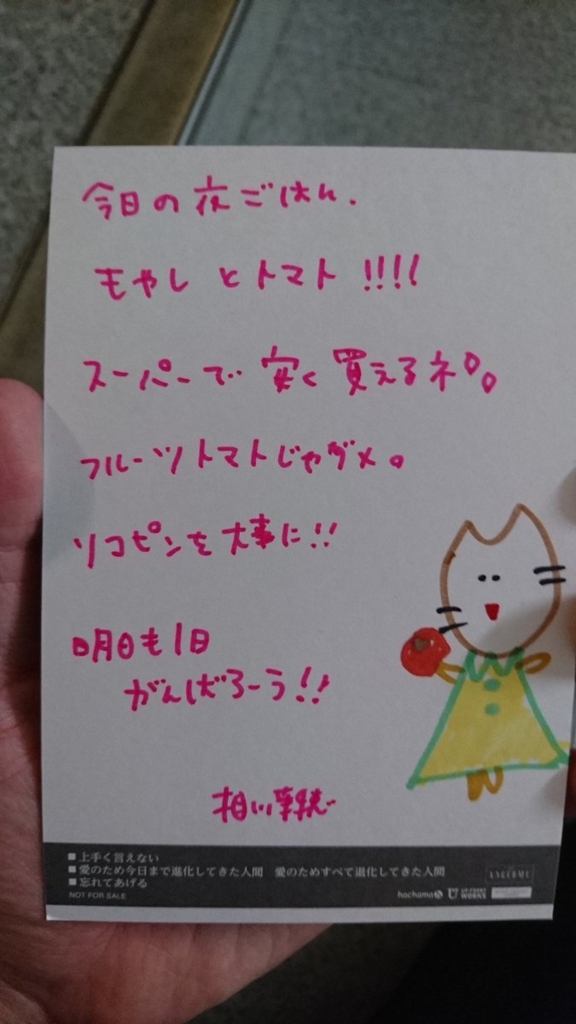 今日の夜ごはん.
もやしとトマト!!!!
スーパーで安く買えるネ。
フルーツトマトじゃダメ。
リコピンを大事に!!
明日も1日
がんばろーう!!
■上手く言えない
■愛のため今日まで進化してきた人間 愛のためすべて退化してきた人間
■忘れてあげる
NOT FOR SALE
ANGERME
hachama
UP-FRONT WORKS